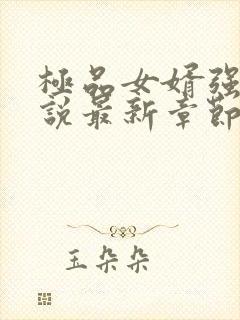 極品女婿强
說最新章節
玉朵朵